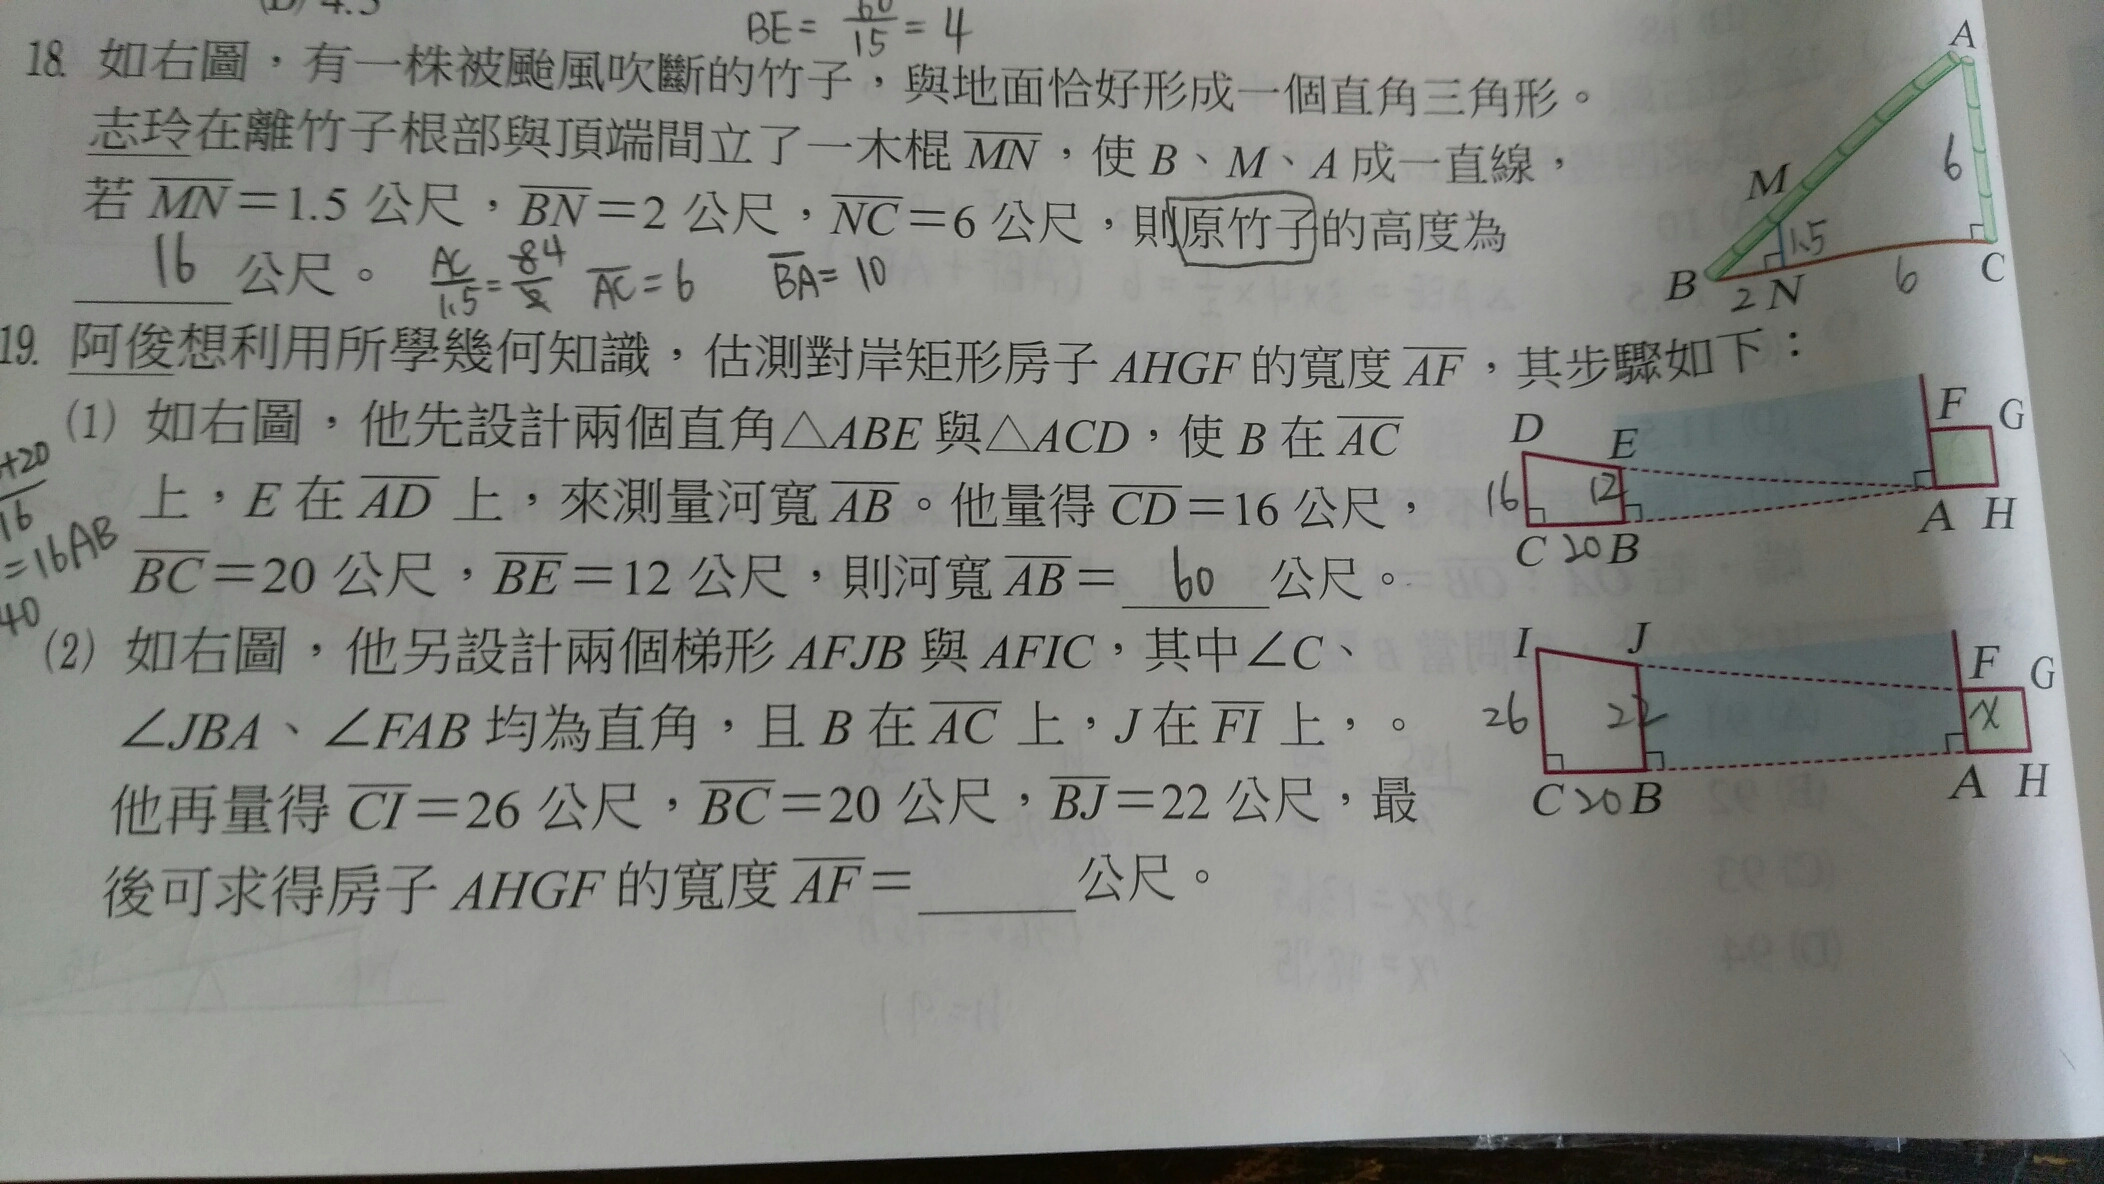 (D) 4.5
BE = 60/15 = 4
18. 如右圖，有一株被颱風吹斷的竹子，與地面恰好形成一個直角三角形。
志玲在離竹子根部與頂端間立了一木棍 MN，使 B、M、A 成一直線，
若 MN＝1.5 公尺，BN＝2 公尺，NC＝6 公尺，則原竹子的高度為
16 公尺。 AC/1.5 = 84/2 AC = 6 BA = 10
A
6
M
1.5
B 2 N 6 C
19. 阿俊想利用所學幾何知識，估測對岸矩形房子 AHGF 的寬度 AF，其步驟如下：
(1) 如右圖，他先設計兩個直角△ABE 與△ACD，使 B 在 AC
上，E 在 AD 上，來測量河寬 AB。他量得 CD＝16 公尺，
BC＝20 公尺，BE＝12 公尺，則河寬 AB＝ 60 公尺。
+20
16
=16AB
40
D E F G
16 12
C 20 B A H
(2) 如右圖，他另設計兩個梯形 AFJB 與 AFIC，其中∠C、
∠JBA、∠FAB 均為直角，且 B 在 AC 上，J 在 FI 上，。
他再量得 CI＝26 公尺，BC＝20 公尺，BJ＝22 公尺，最
後可求得房子 AHGF 的寬度 AF＝ 公尺。
I J F G
26 22 x
C 20 B A H